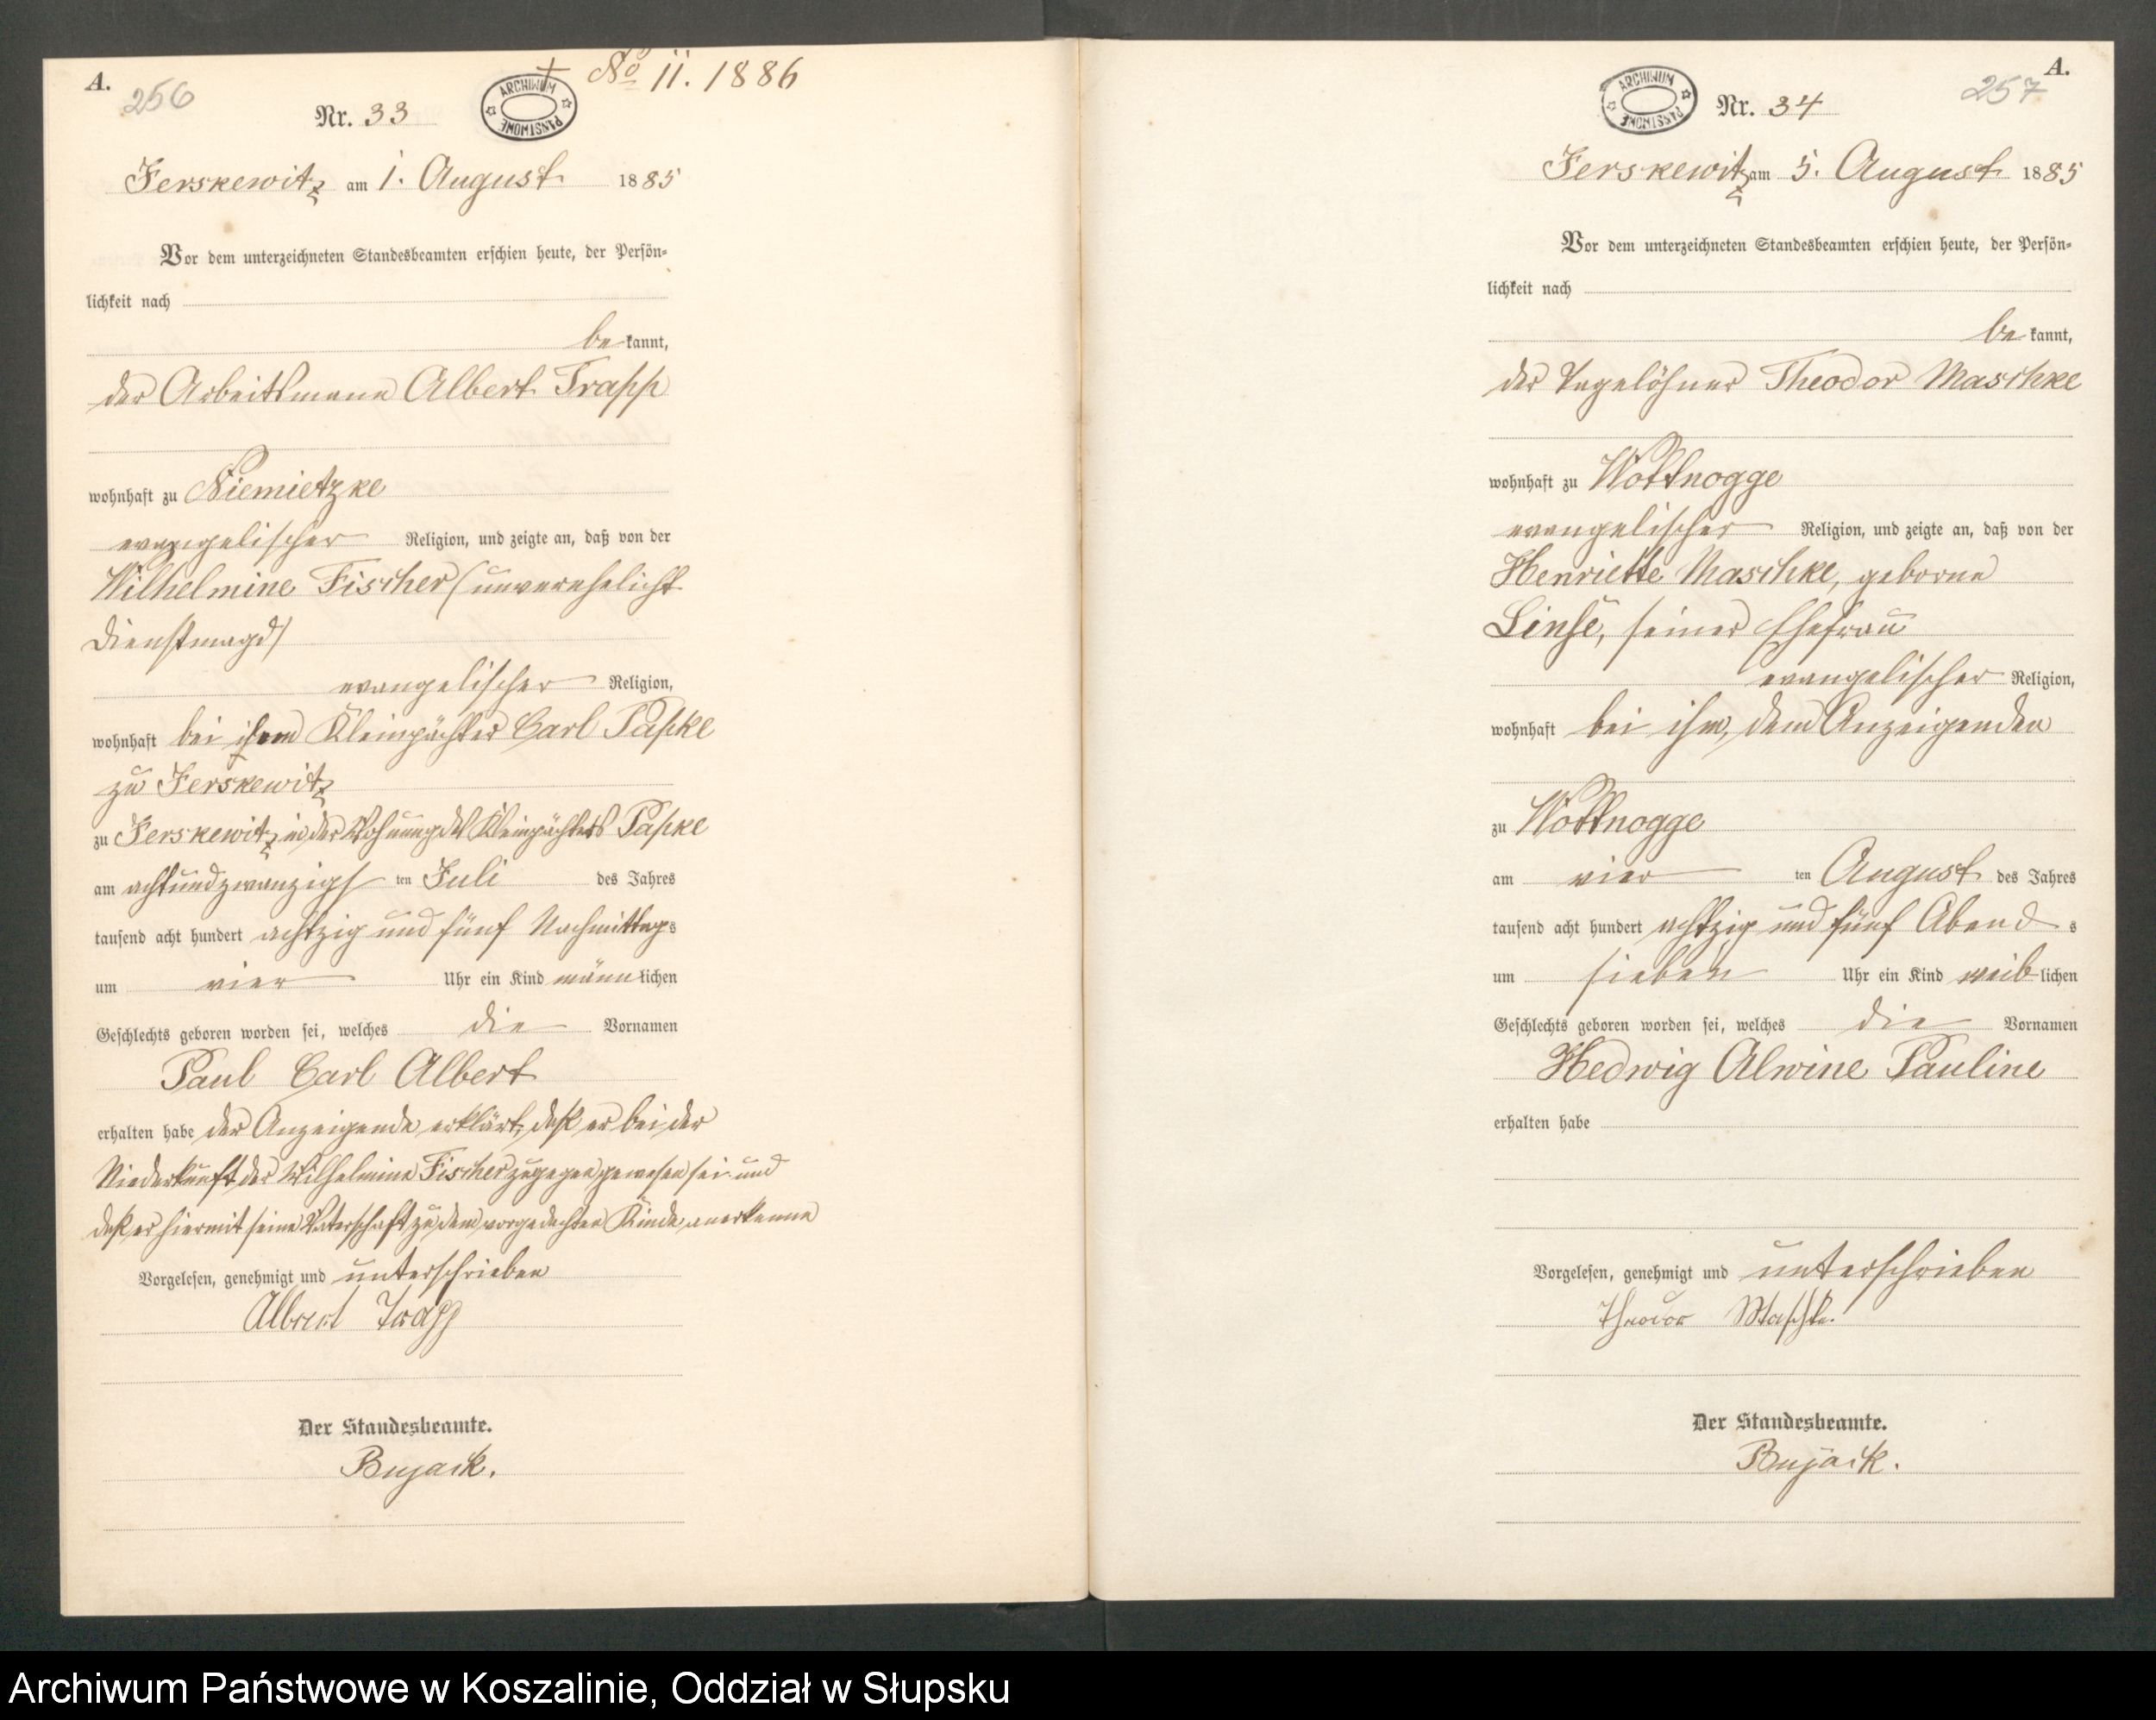 A.
256
+ No 11. 1886
Nr. 33
ARCHIWUM PAŃSTWOWE
Jerskewitz am 1. August 1885
Vor dem unterzeichneten Standesbeamten erschien heute, der Persön-
lichkeit nach
be kannt,
der Arbeitsmann Albert Trapp
wohnhaft zu Niemietzke
evangelischer Religion, und zeigte an, daß von der
Wilhelmine Fischer (unverehelicht
Dienstmagd)
evangelischer Religion,
wohnhaft bei ihrem Kleinpächter Carl Papke
zu Jerskewitz
zu Jerskewitz in der Wohnung des Kleinpächters Papke
am achtundzwanzigs ten Juli des Jahres
tausend acht hundert achtzig und fünf Nachmittag s
um vier Uhr ein Kind männ lichen
Geschlechts geboren worden sei, welches die Vornamen
Paul Carl Albert
erhalten habe der Anzeigende erklärt, daß er bei der
Niederkunft der Wilhelmine Fischer zugegen gewesen sei und
daß er hiermit seine Vaterschaft zu dem vorgedachten Kinde anerkenne
Vorgelesen, genehmigt und unterschrieben
Albert Trapp
Der Standesbeamte.
Bujack.
A.
257
ARCHIWUM PAŃSTWOWE
Nr. 34
Jerskewitz am 5. August 1885
Vor dem unterzeichneten Standesbeamten erschien heute, der Persön-
lichkeit nach
be kannt,
der Tagelöhner Theodor Maschke
wohnhaft zu Wottnogge
evangelischer Religion, und zeigte an, daß von der
Henriette Maschke, geborne
Linse, seiner Ehefrau
evangelischer Religion,
wohnhaft bei ihm, dem Anzeigenden
zu Wottnogge
am vier ten August des Jahres
tausend acht hundert achtzig und fünf Abend s
um sieben Uhr ein Kind weib lichen
Geschlechts geboren worden sei, welches die Vornamen
Hedwig Alwine Pauline
erhalten habe
Vorgelesen, genehmigt und unterschrieben
Theodor Maschke.
Der Standesbeamte.
Bujack.
Archiwum Państwowe w Koszalinie, Oddział w Słupsku